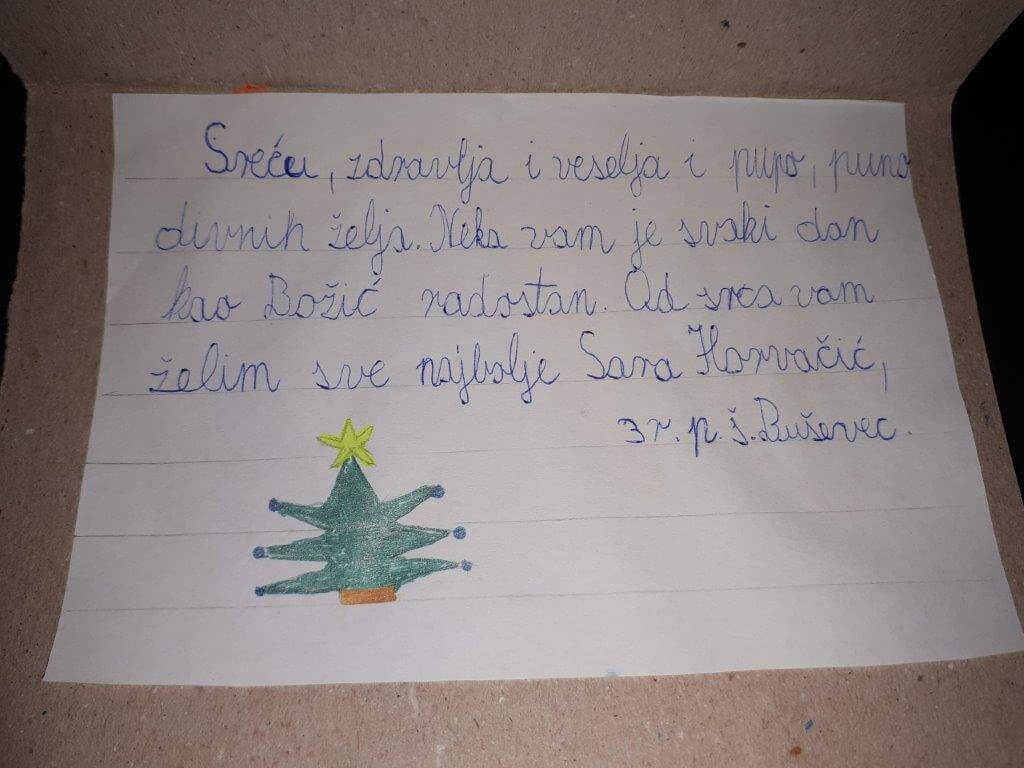 Sreću, zdravlja i veselja i pupo, puno
divnih želja. Neka vam je svaki dan
kao Božić radostan. Od srca vam
želim sve najbolje Sara Horvačić,
3 r. p. š. Buševec.